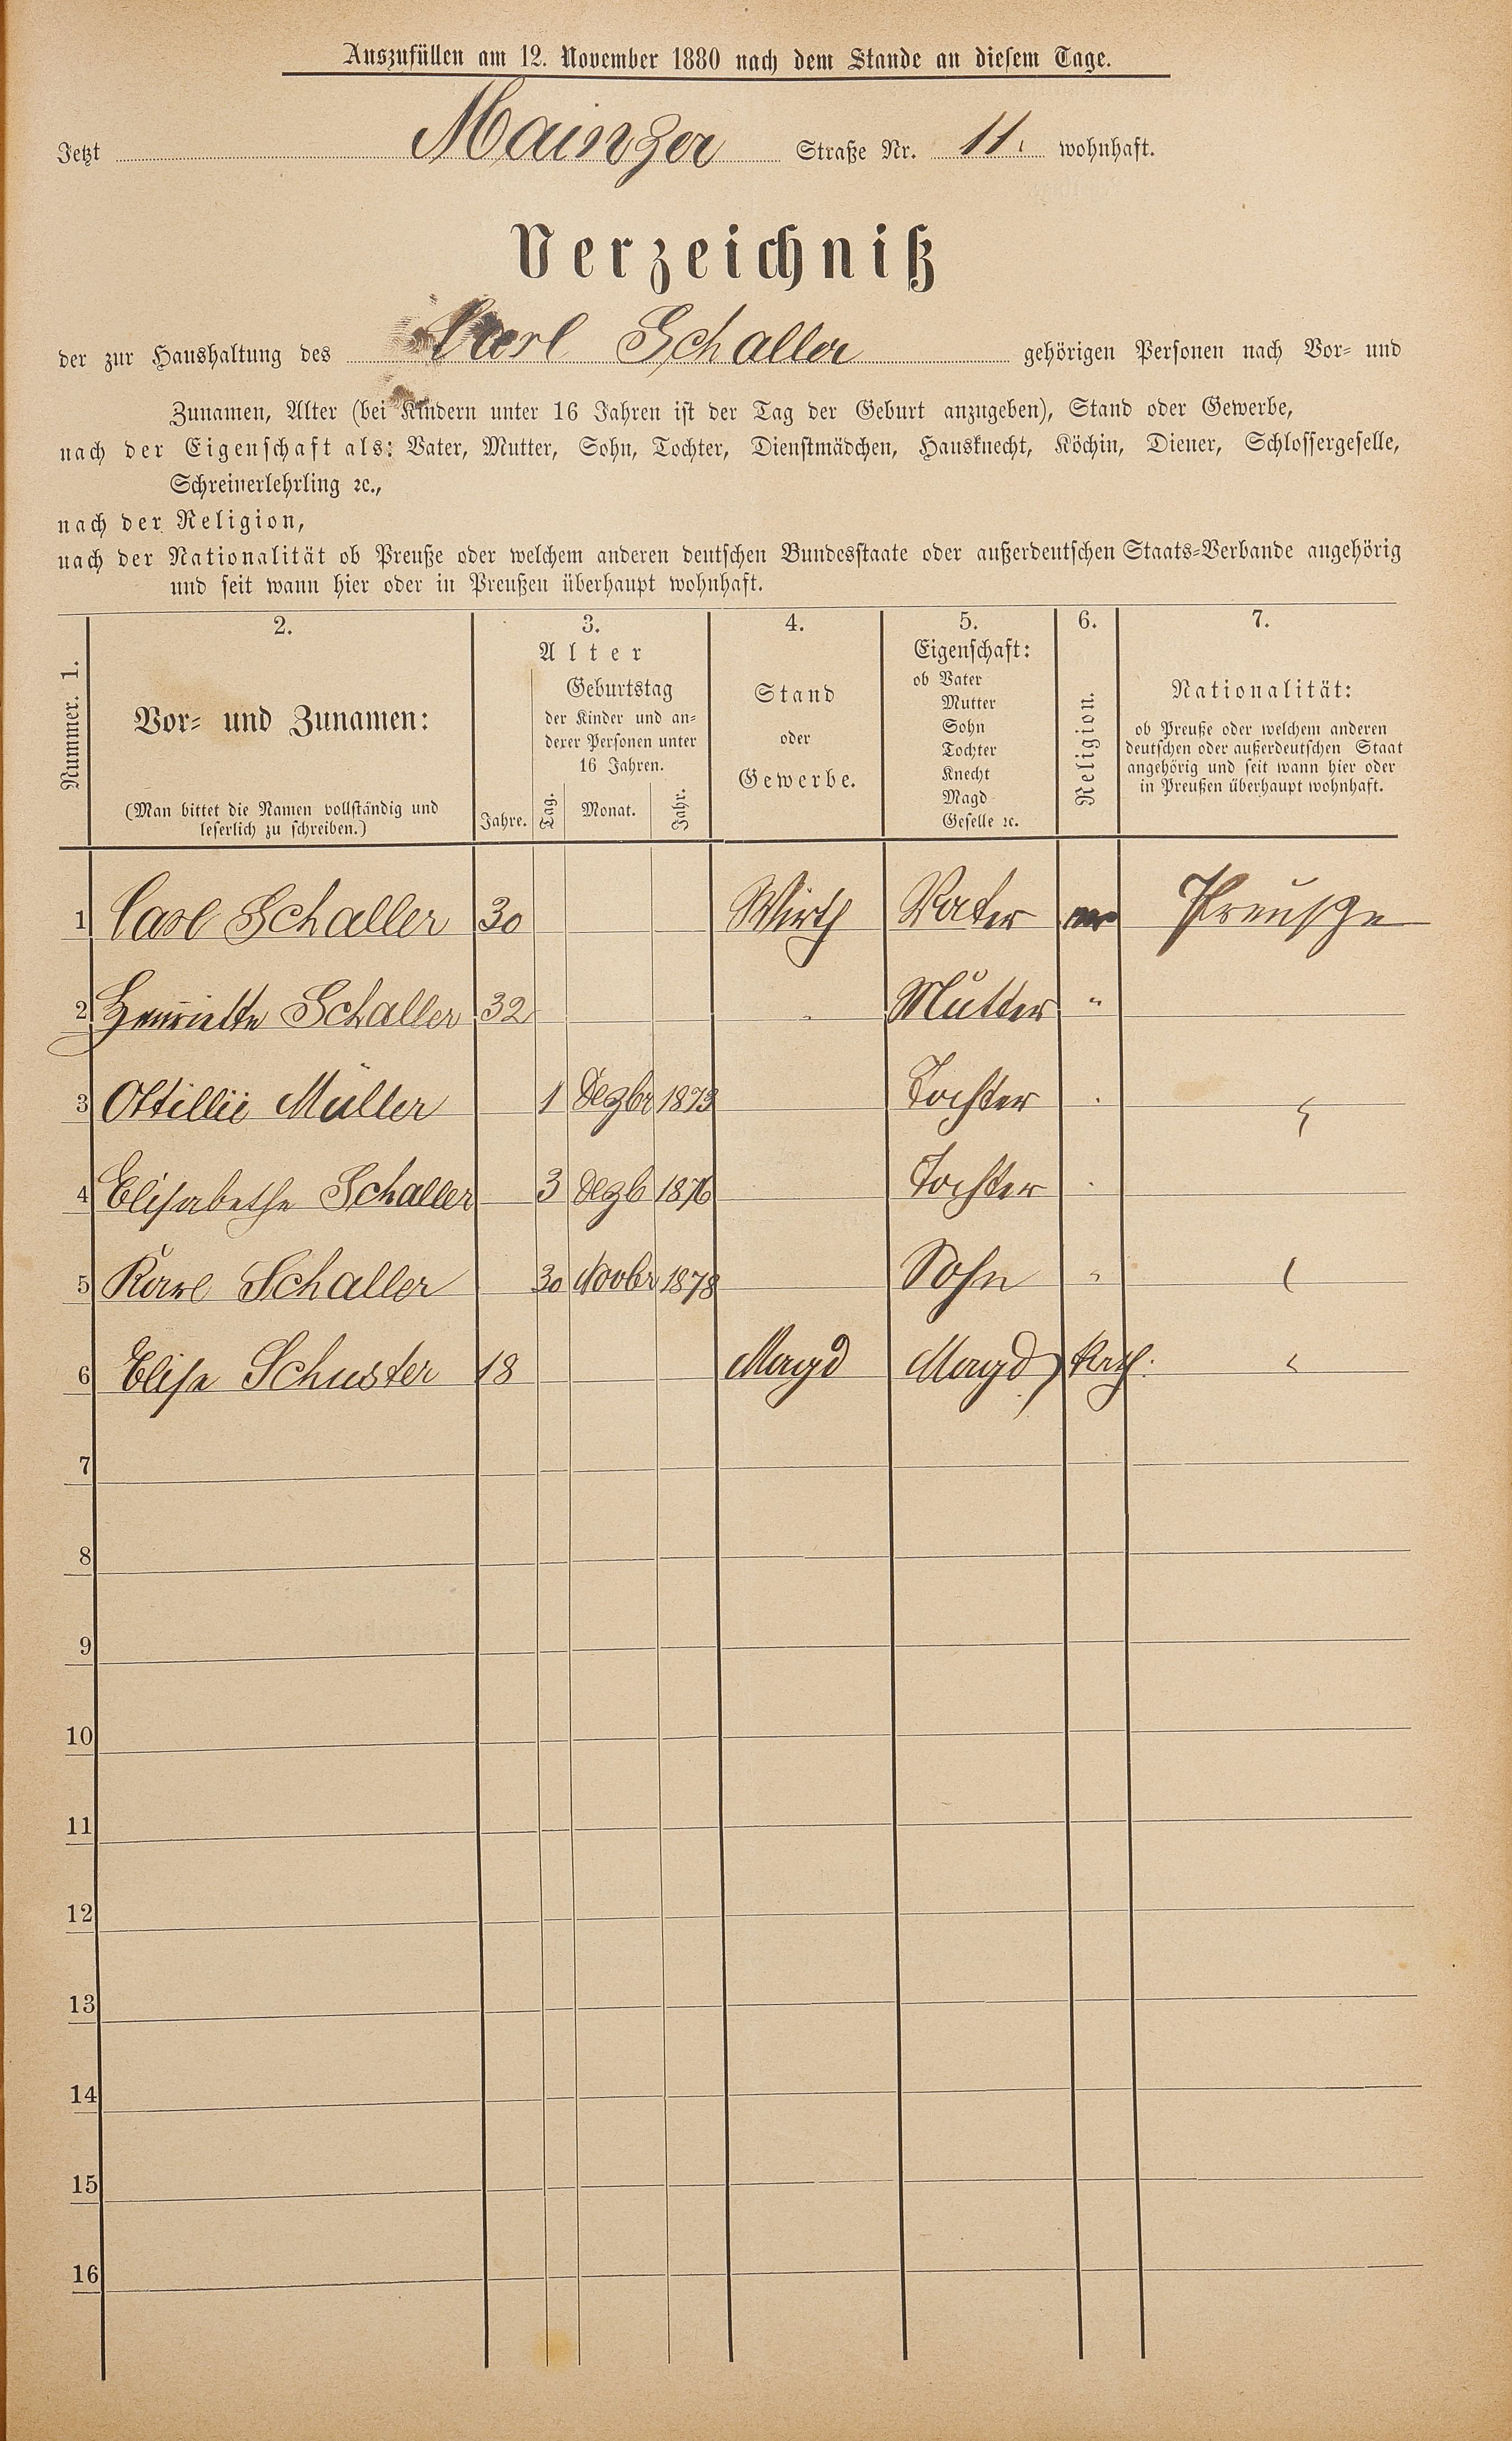 Auszufüllen am 12. November 1880 nach dem Stande an diesem Tage.
Jetzt Mainzer Straße Nr. 11. wohnhaft.
Verzeichniß
der zur Haushaltung des Carl Schaller gehörigen Personen nach Vor- und
Zunamen, Alter (bei Kindern unter 16 Jahren ist der Tag der Geburt anzugeben), Stand oder Gewerbe,
nach der Eigenschaft als: Vater, Mutter, Sohn, Tochter, Dienstmädchen, Hausknecht, Köchin, Diener, Schlossergeselle,
Schreinerlehrling ꝛc.,
nach der Religion,
nach der Nationalität ob Preuße oder welchem anderen deutschen Bundesstaate oder außerdeutschen Staats-Verbande angehörig
und seit wann hier oder in Preußen überhaupt wohnhaft.
Nummer. 1.
2.
Vor- und Zunamen:
(Man bittet die Namen vollständig und
leserlich zu schreiben.)
3.
Alter
Jahre.
Geburtstag
der Kinder und an-
derer Personen unter
16 Jahren.
Tag. Monat. Jahr.
4.
Stand
oder
Gewerbe.
5.
Eigenschaft:
ob Vater
Mutter
Sohn
Tochter
Knecht
Magd
Geselle ꝛc.
6.
Religion.
7.
Nationalität:
ob Preuße oder welchem anderen
deutschen oder außerdeutschen Staat
angehörig und seit wann hier oder
in Preußen überhaupt wohnhaft.
1 Carl Schaller 30 Wirth Vater Preuße
2 Henriette Schaller 32 Mutter "
3 Ottillie Müller 1 Dezbr 1873 Tochter
4 Elisabethe Schaller 3 Dezb 1876 Tochter
5 Karl Schaller 30 Novbr 1878 Sohn "
6 Elise Schuster 18 Magd Magd Kath. "
7
8
9
10
11
12
13
14
15
16